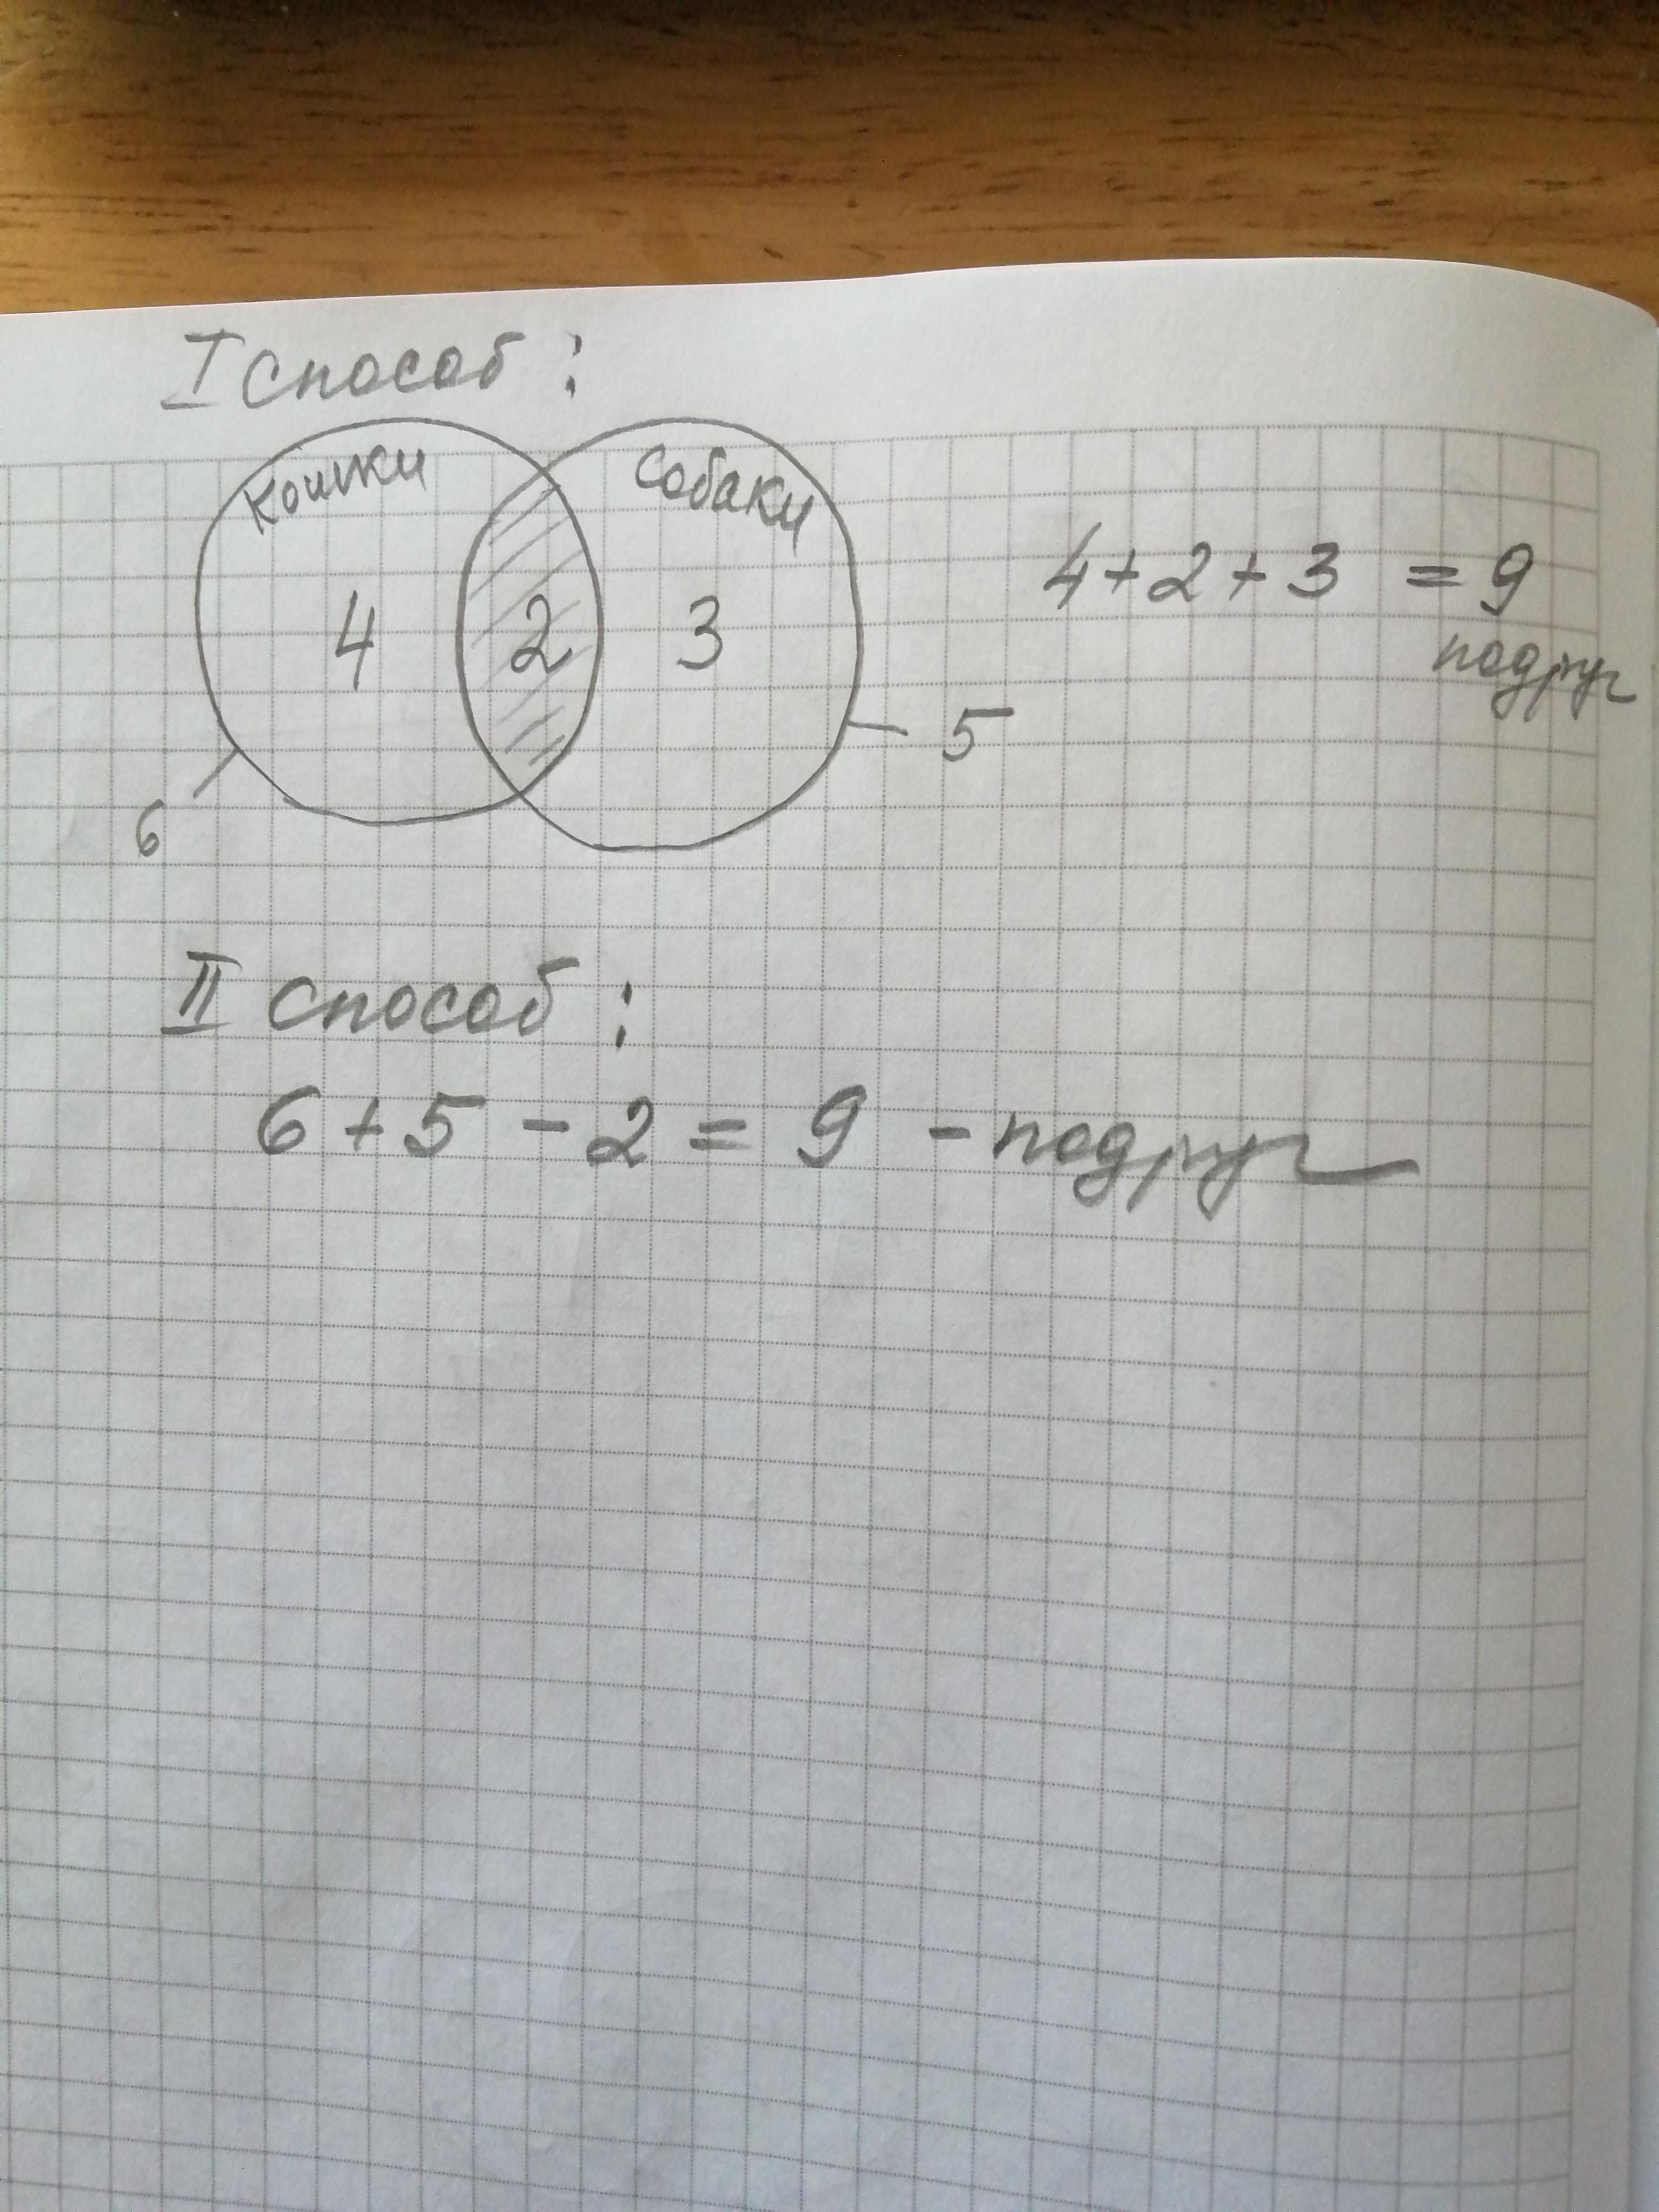 I способ:
кошки
собаки
4
2
3
4+2+3 = 9
подруг
5
6
II способ:
6+5-2=9 - подруг